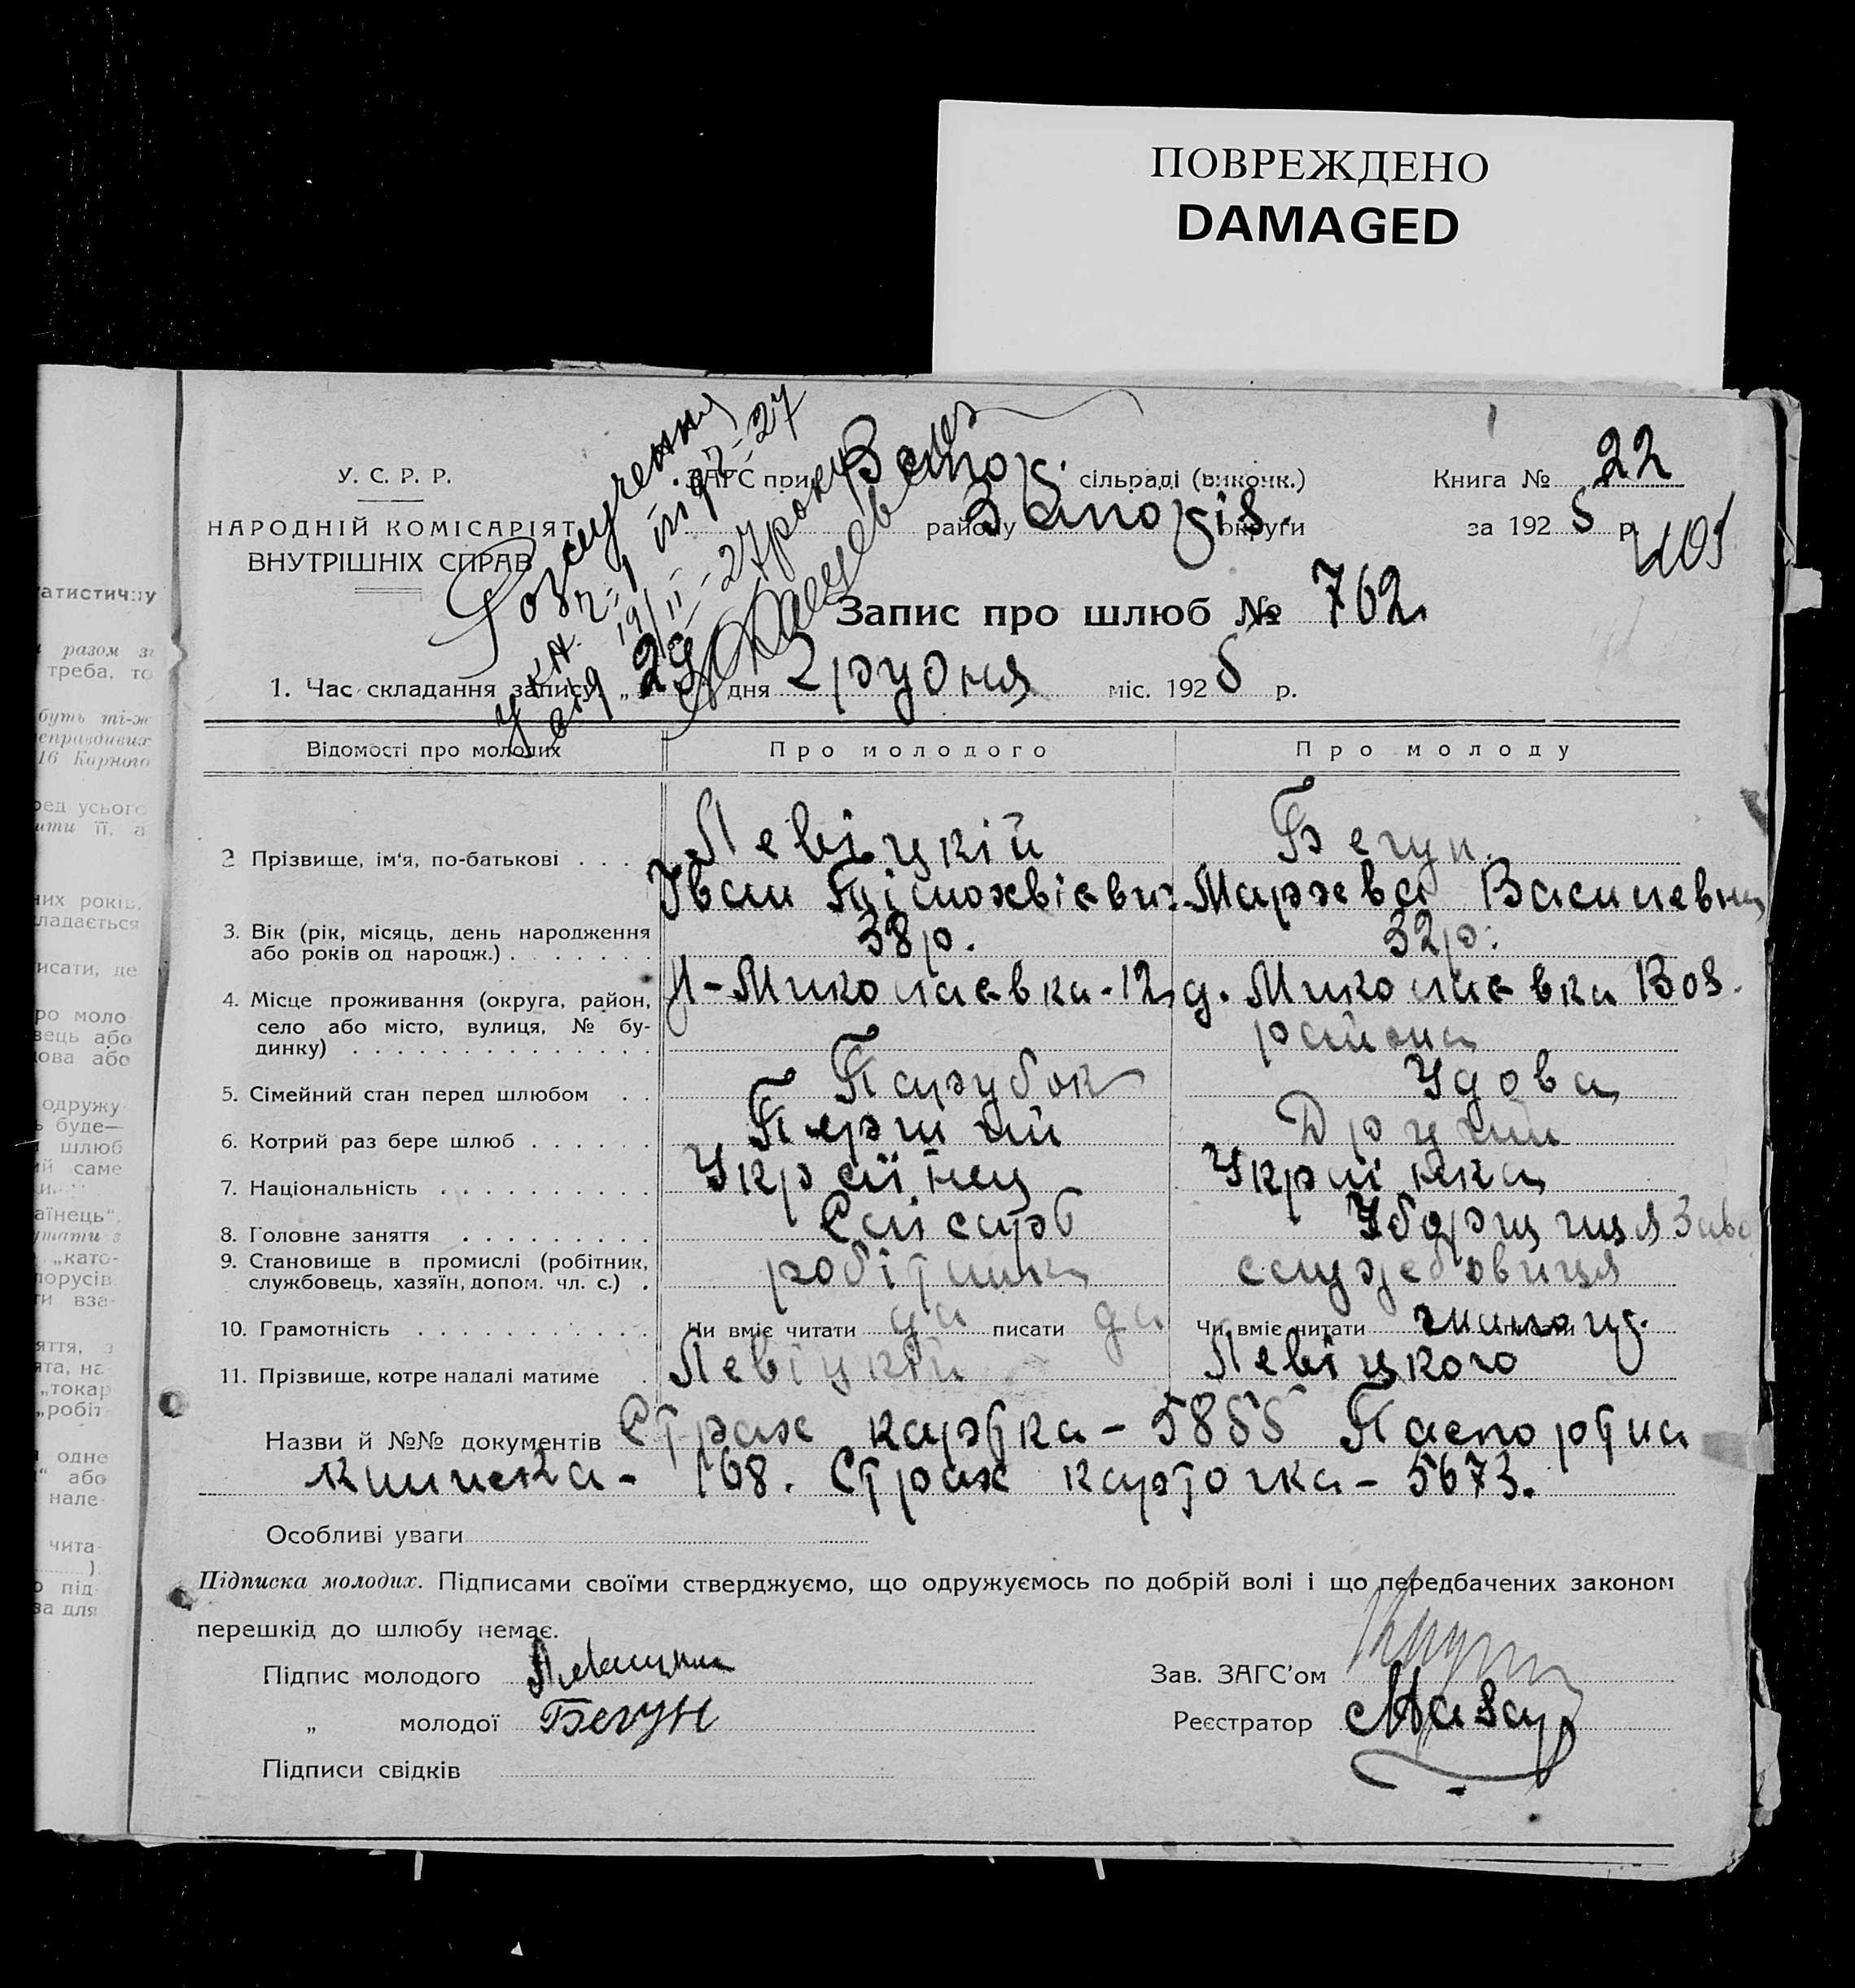 ПОВРЕЖДЕНО
DAMAGED
У. С. Р. Р.
НАРОДНІЙ КОМІСАРІЯТ
ВНУТРІШНІХ СПРАВ
ЗАГС при Запор. сільраді (виконк.)
району Запоріз. округи
Книга № 22
за 1925 р.
Розлучення
19/II-27 року
Запис про шлюб № 762
1. Час складання запису „29" дня Грудня міс. 1925 р.
Відомості про молодих Про молодого Про молоду
2 Прізвище, ім'я, по-батькові . . . . Левіцкій Бегун
Іван Тімохвієвич Маржева Василевна
3. Вік (рік, місяць, день народження
або років од народж.) . . . . . . . 38р. 32р.
4. Місце проживання (округа, район,
село або місто, вулиця, № бу-
динку) . . . . . . . . . . . . . .
Н-Миколаєвка-12 д. Миколаєвка Воз.
района
5. Сімейний стан перед шлюбом . . Парубок Удова
6. Котрий раз бере шлюб . . . . . . Перший Другий
7. Національність . . . . . . . . . . Українец Українка
8. Головне заняття . . . . . . . . . Слісарь Уборщиця Заво
9. Становище в промислі (робітник,
службовець, хазяїн, допом. чл. с.) . робітник служебовиця
10. Грамотність . . . . . . . . . . . Чи вміє читати да писати да Чи вміє читати писати
11. Прізвище, котре надалі матиме . Левіцкій Левіцкого
Назви й №№ документів Страх картка - 5855 Паспортна
книжка - 168. Страх карточка - 5673.
Особливі уваги
Підписка молодих. Підписами своїми стверджуємо, що одружуємось по добрій волі і що передбачених законом
перешкід до шлюбу немає.
Підпис молодого
„ молодої Бегун
Підписи свідків
Зав. ЗАГС'ом
Реєстратор Мазар
атистичну
разом з
треба, то
буть ті-ж
еправдивих
16 Карного
ред усього
ити її, а
них років,
кладається
исати, де
ро моло
вець або
ова або
одружу
буде—
шлюб
ий саме
аїнець".
„като-
орусів
ти вза-
яття, з
ята, на-
„токар
„робіт-
одне
" або
нале-
чита-
)
о під-
ва для